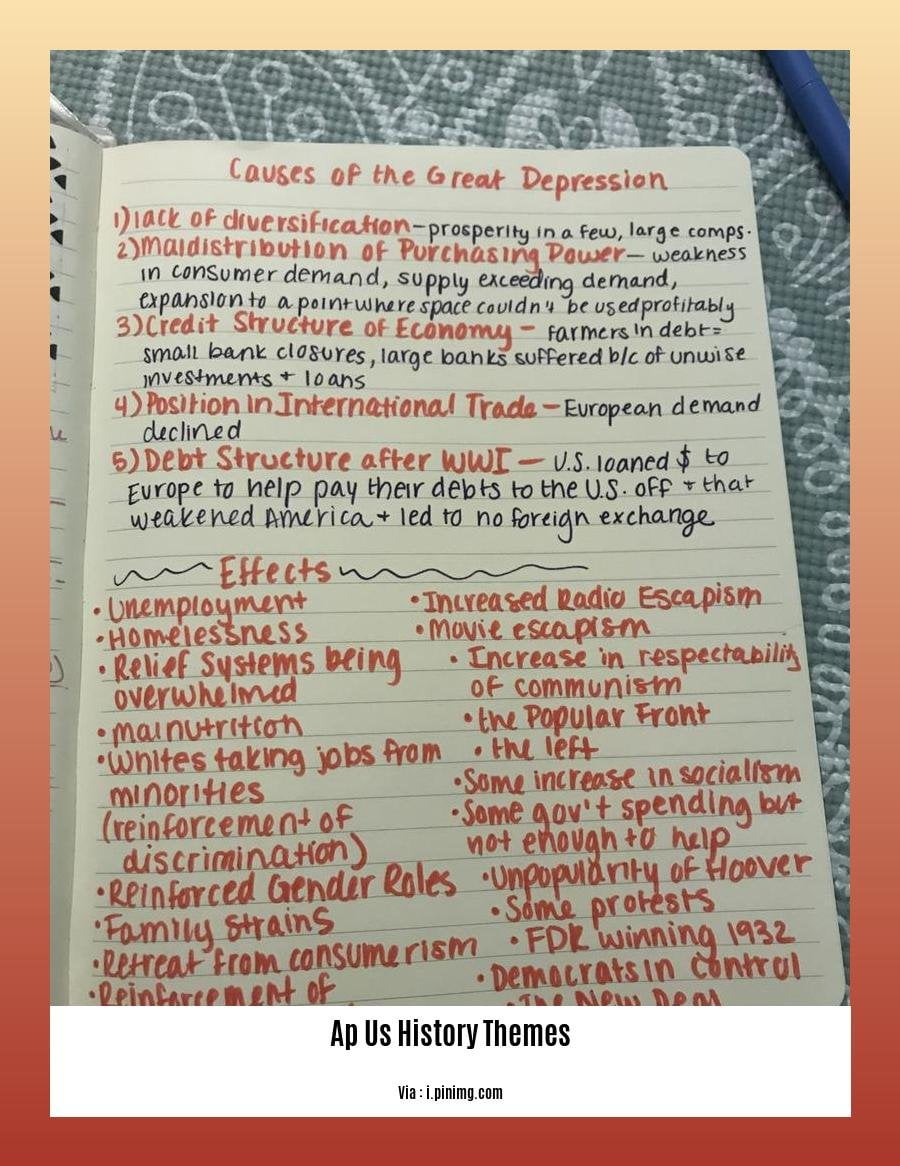 Causes of the Great Depression
1) lack of diversification - prosperity in a few, large comps.
2) Maldistribution of Purchasing Power - weakness
in consumer demand, supply exceeding demand,
expansion to a point where space couldn't be used profitably
3) Credit Structure of Economy - farmers in debt =
small bank closures, large banks suffered b/c of unwise
investments + loans
4) Position in International Trade - European demand
declined
5) Debt Structure after WWI - U.S. loaned $ to
Europe to help pay their debts to the U.S. off + that
weakened America + led to no foreign exchange
Effects
• Unemployment
• Homelessness
• Relief Systems being
overwhelmed
• malnutrition
• Whites taking jobs from
minorities
(reinforcement of
discrimination)
• Reinforced Gender Roles
• Family Strains
• Retreat from consumerism
• Reinforcement of
• Increased Radio Escapism
• Movie escapism
• Increase in respectability
of communism
• the Popular Front
• the left
• Some increase in socialism
• Some gov't spending but
not enough to help
• Unpopularity of Hoover
• Some protests
• FDR winning 1932
• Democrats in control
• The New Deal
Ap Us History Themes
Via : i.pinimg.com